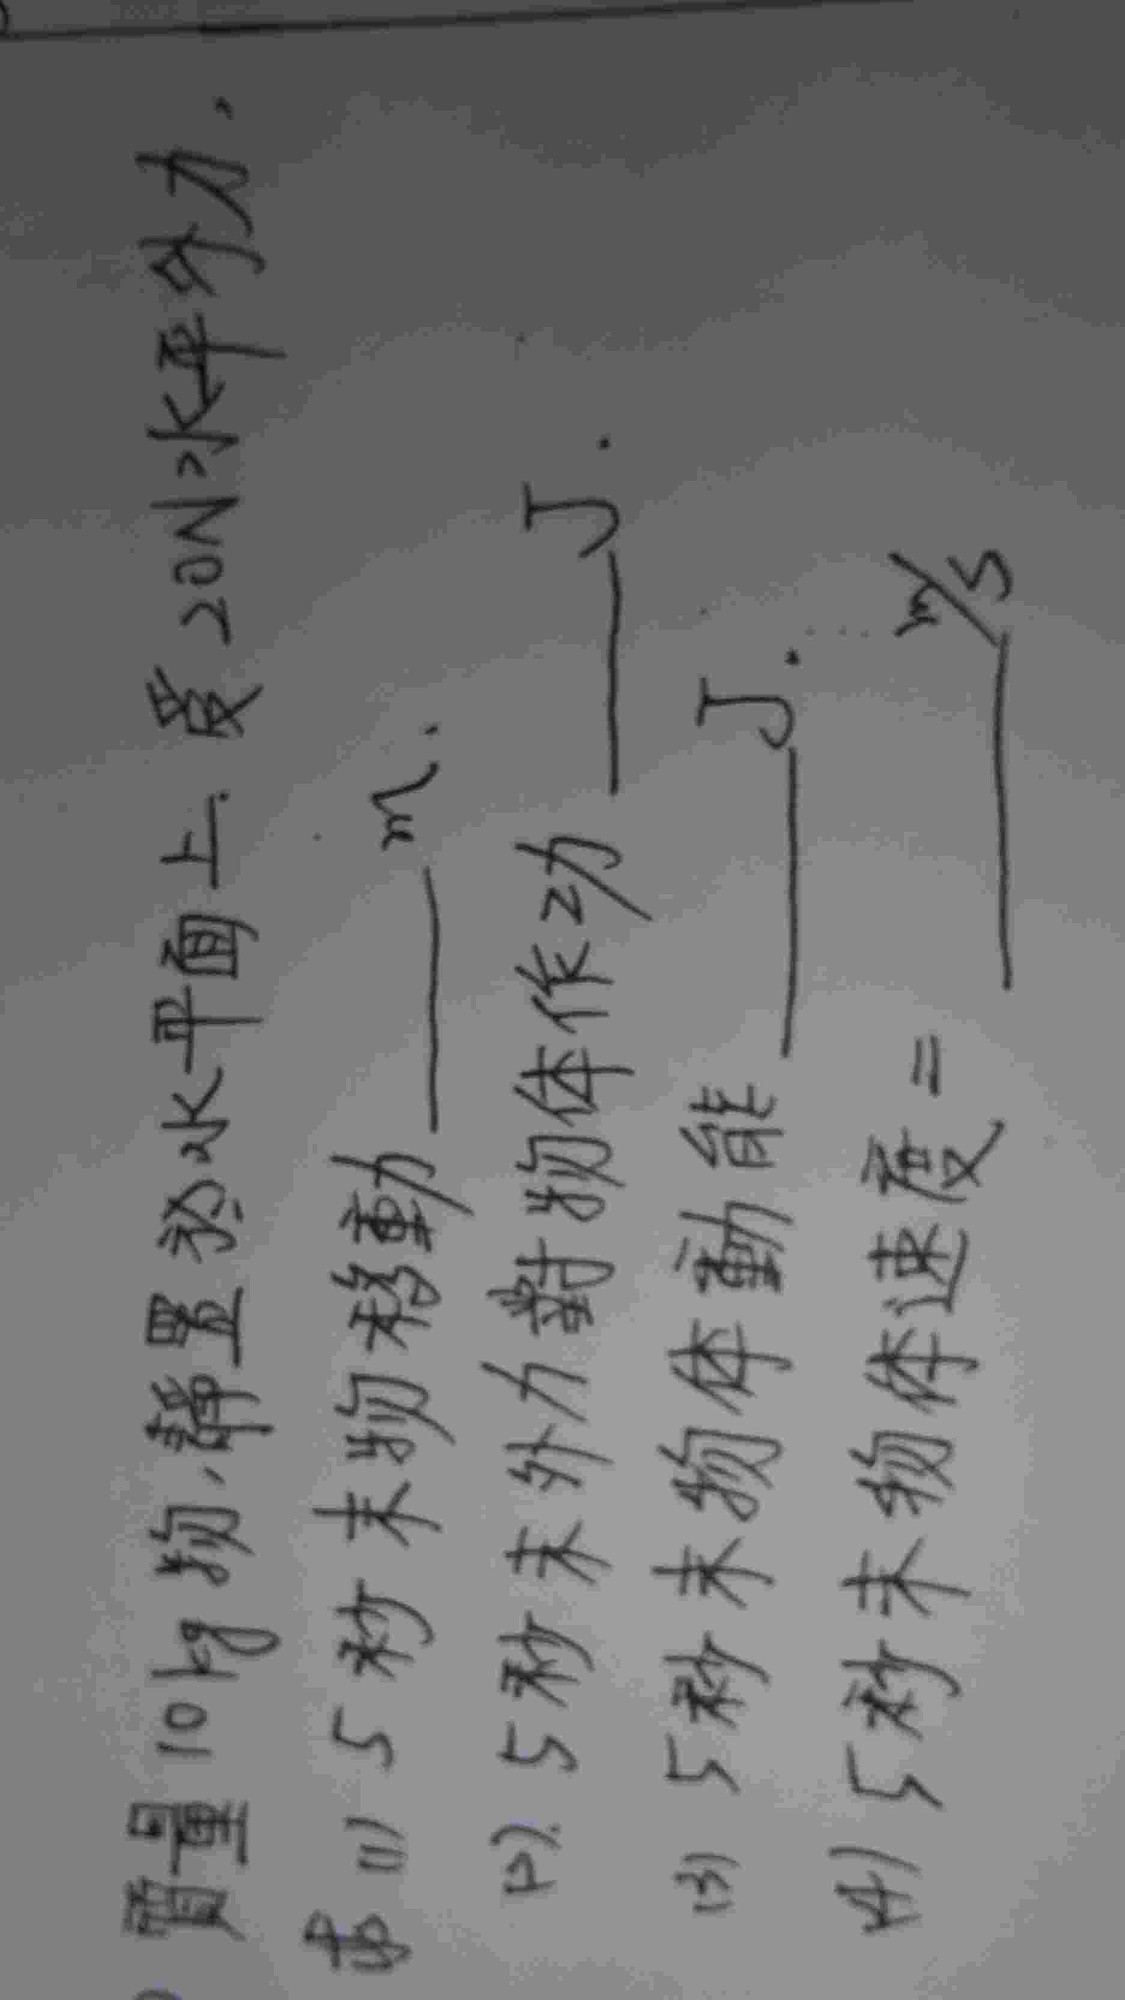 質量10kg物,靜置於水平面上.受20N水平外力,
求(1) 5秒末物移動____m.
(2). 5秒末外力對物体作功____J.
(3) 5秒末物体動能____J.
(4) 5秒末物体速度=____m/s